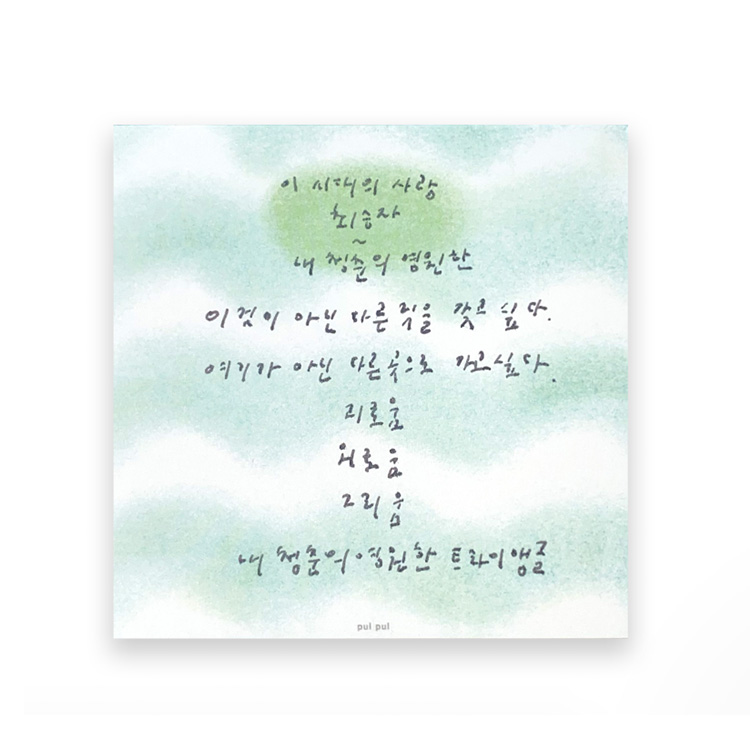 이 시대의 사랑
최승자
~
내 청춘의 영원한
이것이 아닌 다른 것을 갖고 싶다.
여기가 아닌 다른 곳으로 가고 싶다.
괴로움
외로움
그리움
내 청춘의 영원한 트라이앵글
pul pul